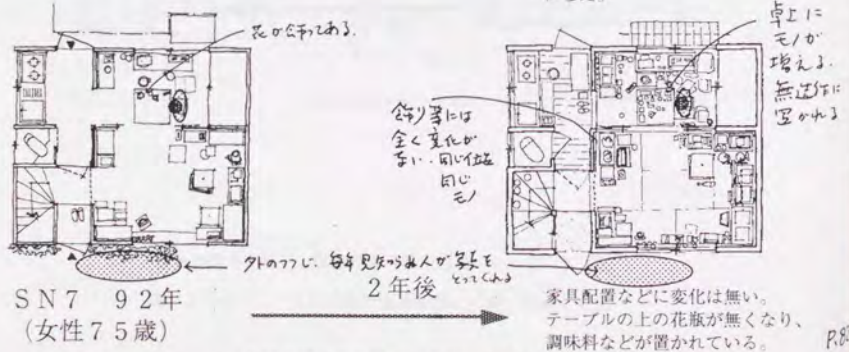 花が飾ってある.
卓上に
モノが
増える.
無造作に
置かれる
飾り等には
全く変化が
ない.同じ位置
同じ
モノ
外のツツジ.毎年見知らぬ人が写真を
とってくれる
SN7 92年
(女性75歳)
2年後
家具配置などに変化は無い。
テーブルの上の花瓶が無くなり、
調味料などが置かれている。